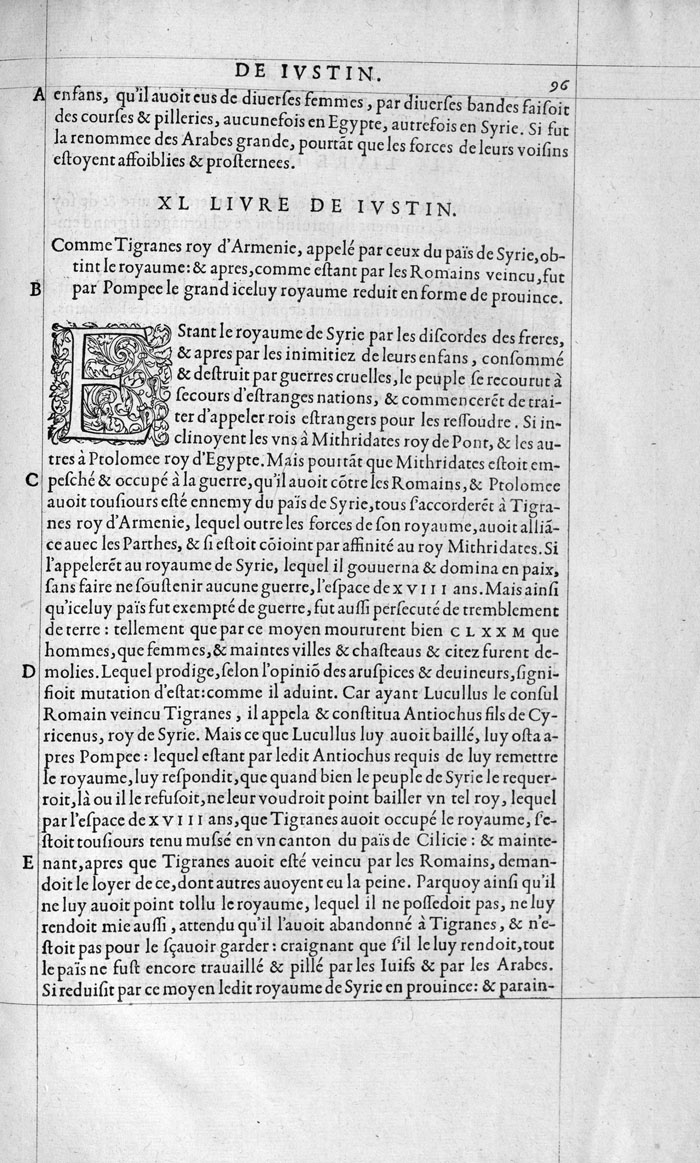 DE IVSTIN.
96
A enfans, qu'il auoit eus de diuerſes femmes, par diuerſes bandes faiſoit
des courſes & pilleries, aucunefois en Egypte, autrefois en Syrie. Si fut
la renommee des Arabes grande, pourtãt que les forces de leurs voiſins
eſtoyent affoiblies & proſternees.
XL LIVRE DE IVSTIN.
Comme Tigranes roy d'Armenie, appelé par ceux du païs de Syrie, ob-
tint le royaume: & apres, comme eſtant par les Romains veincu, fut
B par Pompee le grand iceluy royaume reduit en forme de prouince.
EStant le royaume de Syrie par les diſcordes des freres,
& apres par les inimitiez de leurs enfans, conſommé
& deſtruit par guerres cruelles, le peuple ſe recourut à
ſecours d'eſtranges nations, & commencerẽt de trai-
ter d'appeler rois eſtrangers pour les reſſoudre. Si in-
clinoyent les vns à Mithridates roy de Pont, & les au-
tres à Ptolomee roy d'Egypte. Mais pourtãt que Mithridates eſtoit em-
C peſché & occupé à la guerre, qu'il auoit cõtre les Romains, & Ptolomee
auoit touſiours eſté ennemy du païs de Syrie, tous ſ'accorderẽt à Tigra-
nes roy d'Armenie, lequel outre les forces de ſon royaume, auoit alliã-
ce auec les Parthes, & ſi eſtoit cõioint par affinité au roy Mithridates. Si
l'appelerẽt au royaume de Syrie, lequel il gouuerna & domina en paix,
ſans faire ne ſouſtenir aucune guerre, l'eſpace de XVIII ans. Mais ainſi
qu'iceluy païs fut exempté de guerre, fut auſſi perſecuté de tremblement
de terre : tellement que par ce moyen moururent bien CLXXM que
hommes, que femmes, & maintes villes & chaſteaus & citez furent de-
D molies. Lequel prodige, ſelon l'opiniõ des aruſpices & deuineurs, ſigni-
fioit mutation d'eſtat: comme il aduint. Car ayant Lucullus le conſul
Romain veincu Tigranes, il appela & conſtitua Antiochus fils de Cy-
ricenus, roy de Syrie. Mais ce que Lucullus luy auoit baillé, luy oſta a-
pres Pompee : lequel eſtant par ledit Antiochus requis de luy remettre
le royaume, luy reſpondit, que quand bien le peuple de Syrie le requer-
roit, là ou il le refuſoit, ne leur voudroit point bailler vn tel roy, lequel
par l'eſpace de XVIII ans, que Tigranes auoit occupé le royaume, ſ'e-
ſtoit touſiours tenu muſſé en vn canton du païs de Cilicie : & mainte-
E nant, apres que Tigranes auoit eſté veincu par les Romains, deman-
doit le loyer de ce, dont autres auoyent eu la peine. Parquoy ainſi qu'il
ne luy auoit point tollu le royaume, lequel il ne poſſedoit pas, ne luy
rendoit mie auſſi, attendu qu'il l'auoit abandonné à Tigranes, & n'e-
ſtoit pas pour le ſçauoir garder : craignant que ſ'il le luy rendoit, tout
le païs ne fuſt encore trauaillé & pillé par les Iuifs & par les Arabes.
Si reduiſit par ce moyen ledit royaume de Syrie en prouince: & parain-